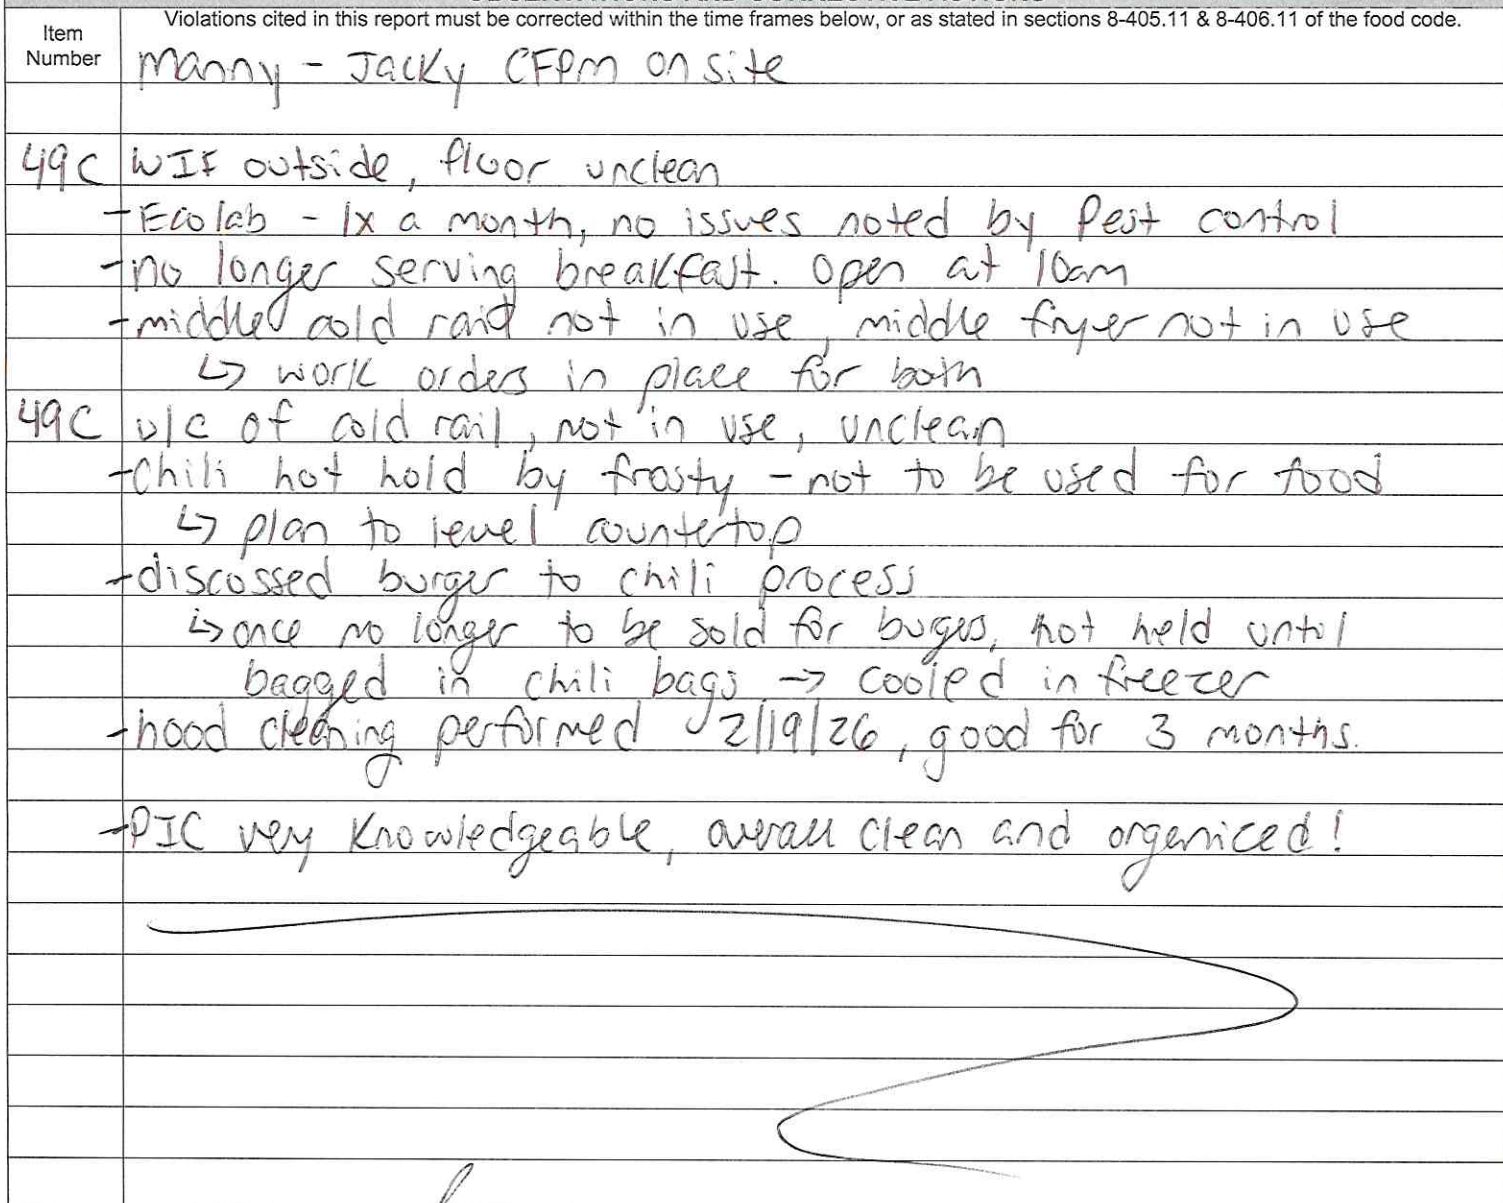 Violations cited in this report must be corrected within the time frames below, or as stated in sections 8-405.11 & 8-406.11 of the food code.
Item Number
Manny - Jacky CFPM on site
49C WIF outside, floor unclean
- Ecolab - 1x a month, no issues noted by Pest control
- no longer serving breakfast. Open at 10am
- middle cold rail not in use, middle fryer not in use
↳ work orders in place for both
49C u/c of cold rail, not in use, unclean
- Chili hot hold by frosty - not to be used for food
↳ plan to level countertop
- discossed burger to chili process
↳ once no longer to be sold for burges, hot held until
bagged in chili bags → cooled in freezer
- hood cleaning performed 2/19/26, good for 3 months.
- PIC very Knowledgeable, overall clean and organiced!